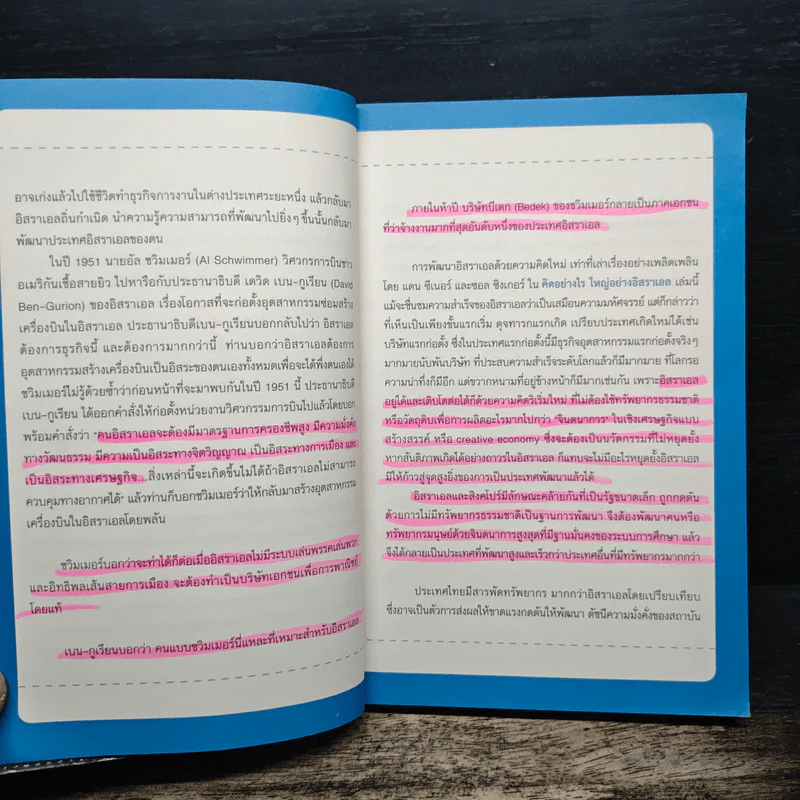 อาจเก่งแล้วไปใช้ชีวิตทำธุรกิจการงานในต่างประเทศระยะหนึ่ง แล้วกลับมา
อิสราเอลถิ่นกำเนิด นำความรู้ความสามารถที่พัฒนาไปยิ่งๆ ขึ้นนั้นกลับมา
พัฒนาประเทศอิสราเอลของตน
ในปี 1951 นายอัล ชวิมเมอร์ (Al Schwimmer) วิศวกรการบินชาว
อเมริกันเชื้อสายยิว ไปหารือกับประธานาธิบดี เดวิด เบน-กูเรียน (David
Ben-Gurion) ของอิสราเอล เรื่องโอกาสที่จะก่อตั้งอุตสาหกรรมซ่อมสร้าง
เครื่องบินในอิสราเอล ประธานาธิบดีเบน-กูเรียนบอกกลับไปว่า อิสราเอล
ต้องการธุรกิจนี้ และต้องการมากกว่านี้ ท่านบอกว่าอิสราเอลต้องการ
อุตสาหกรรมสร้างเครื่องบินเป็นอิสระของตนเองทั้งหมดเพื่อจะได้พึ่งตนเองได้
ชวิมเมอร์ไม่รู้ด้วยซ้ำว่าก่อนหน้าที่จะมาพบกันในปี 1951 นี้ ประธานาธิบดี
เบน-กูเรียน ได้ออกคำสั่งให้ก่อตั้งหน่วยงานวิศวกรรมการบินไปแล้วโดยบอก
พร้อมคำสั่งว่า "คนอิสราเอลจะต้องมีมาตรฐานการครองชีพสูง มีความมั่งคั่ง
ทางวัฒนธรรม มีความเป็นอิสระทางจิตวิญญาณ เป็นอิสระทางการเมือง และ
เป็นอิสระทางเศรษฐกิจ...สิ่งเหล่านี้จะเกิดขึ้นไม่ได้ถ้าอิสราเอลไม่สามารถ
ควบคุมทางอากาศได้" แล้วท่านก็บอกชวิมเมอร์ว่าให้กลับมาสร้างอุตสาหกรรม
เครื่องบินในอิสราเอลโดยพลัน
ชวิมเมอร์บอกว่าจะทำได้ก็ต่อเมื่ออิสราเอลไม่มีระบบเล่นพรรคเล่นพวก
และอิทธิพลเส้นสายการเมือง จะต้องทำเป็นบริษัทเอกชนเพื่อการพาณิชย์
โดยแท้
เบน-กูเรียนบอกว่า คนแบบชวิมเมอร์นี่แหละที่เหมาะสำหรับอิสราเอล
ภายในห้าปี บริษัทบีเดก (Bedek) ของชวิมเมอร์กลายเป็นภาคเอกชน
ที่ว่าจ้างงานมากที่สุดอันดับหนึ่งของประเทศอิสราเอล
การพัฒนาอิสราเอลด้วยความคิดใหม่ เท่าที่เล่าเรื่องอย่างเพลิดเพลิน
โดย แดน ซีเนอร์ และซอล ซิงเกอร์ ใน คิดอย่างไร ใหญ่อย่างอิสราเอล เล่มนี้
แม้จะชื่นชมความสำเร็จของอิสราเอลว่าเป็นเสมือนความมหัศจรรย์ แต่ก็กล่าวว่า
ที่เห็นเป็นเพียงขั้นแรกเริ่ม ดุจทารกแรกเกิด เปรียบประเทศเกิดใหม่ได้เช่น
บริษัทแรกก่อตั้ง ซึ่งในประเทศแรกก่อตั้งนี้มีธุรกิจอุตสาหกรรมแรกก่อตั้งจริงๆ
มากมายนับพันบริษัท ที่ประสบความสำเร็จระดับโลกแล้วก็มีมากมาย ที่โลกรอ
ความน่าทึ่งก็มีอีก แต่ขวากหนามที่อยู่ข้างหน้าก็มีมากเช่นกัน เพราะอิสราเอล
อยู่ได้และเติบโตต่อได้ก็ด้วยความคิดริเริ่มใหม่ ที่ไม่ต้องใช้ทรัพยากรธรรมชาติ
หรือวัตถุดิบเพื่อการผลิตอะไรมากไปกว่า "จินตนาการ" ในเชิงเศรษฐกิจแบบ
สร้างสรรค์ หรือ creative economy ซึ่งจะต้องเป็นนวัตกรรมที่ไม่หยุดยั้ง
หากสันติภาพเกิดได้อย่างถาวรในอิสราเอล ก็แทบจะไม่มีอะไรหยุดยั้งอิสราเอล
มิให้ก้าวสู่จุดสูงยิ่งของการเป็นประเทศพัฒนาแล้วได้
อิสราเอลและสิงคโปร์มีลักษณะคล้ายกันที่เป็นรัฐขนาดเล็ก ถูกกดดัน
ด้วยการไม่มีทรัพยากรธรรมชาติเป็นฐานการพัฒนา จึงต้องพัฒนาคนหรือ
ทรัพยากรมนุษย์ด้วยจินตนาการสูงสุดที่มีฐานมั่นคงของระบบการศึกษา แล้ว
จึงได้กลายเป็นประเทศที่พัฒนาสูงและเร็วกว่าประเทศอื่นที่มีทรัพยากรมากกว่า
ประเทศไทยมีสารพัดทรัพยากร มากกว่าอิสราเอลโดยเปรียบเทียบ
ซึ่งอาจเป็นตัวการส่งผลให้ขาดแรงกดดันให้พัฒนา ดัชนีความมั่งคั่งของสถาบัน